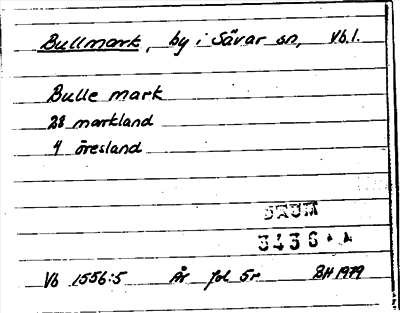 Bullmark, by i Sävar sn, Vb.l.
Bulle mark
28 markland
4 öresland
DAUM
3436
Vb 1556:5 År fol. 5r BH 1979